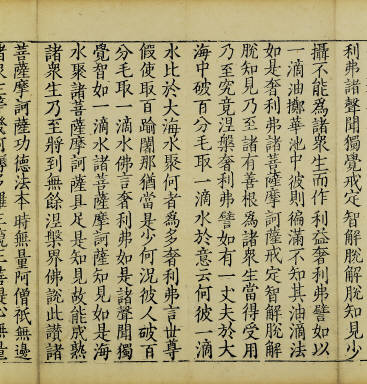 利弗諸聲聞獨覺戒定智解脫解脫知見少
攝不能為諸衆生而作利益奢利弗譬如以
一滴油擲華池中彼則徧滿不知其油滴法
如是奢利弗諸菩薩摩訶薩戒定智解脫解
脫知見乃至諸有善根為諸衆生當得受用
乃至究竟涅槃奢利弗譬如有一丈夫於大
海中破百分毛取一滴水於意云何彼一滴
水比於大海水聚何者為多奢利弗言世尊
假使取百踰闍那猶當是少何況彼人破百
分毛取一滴水佛言奢利弗如是諸聲聞獨
覺智如一滴水諸菩薩摩訶薩知見如是海
水聚諸菩薩摩訶薩具足是知見故能成熟
諸衆生乃至將到無餘涅槃界佛說此讚諸
菩薩摩訶薩功德法本時無量阿僧祇無邊
諸衆生等發阿耨多羅三藐三菩提心無量